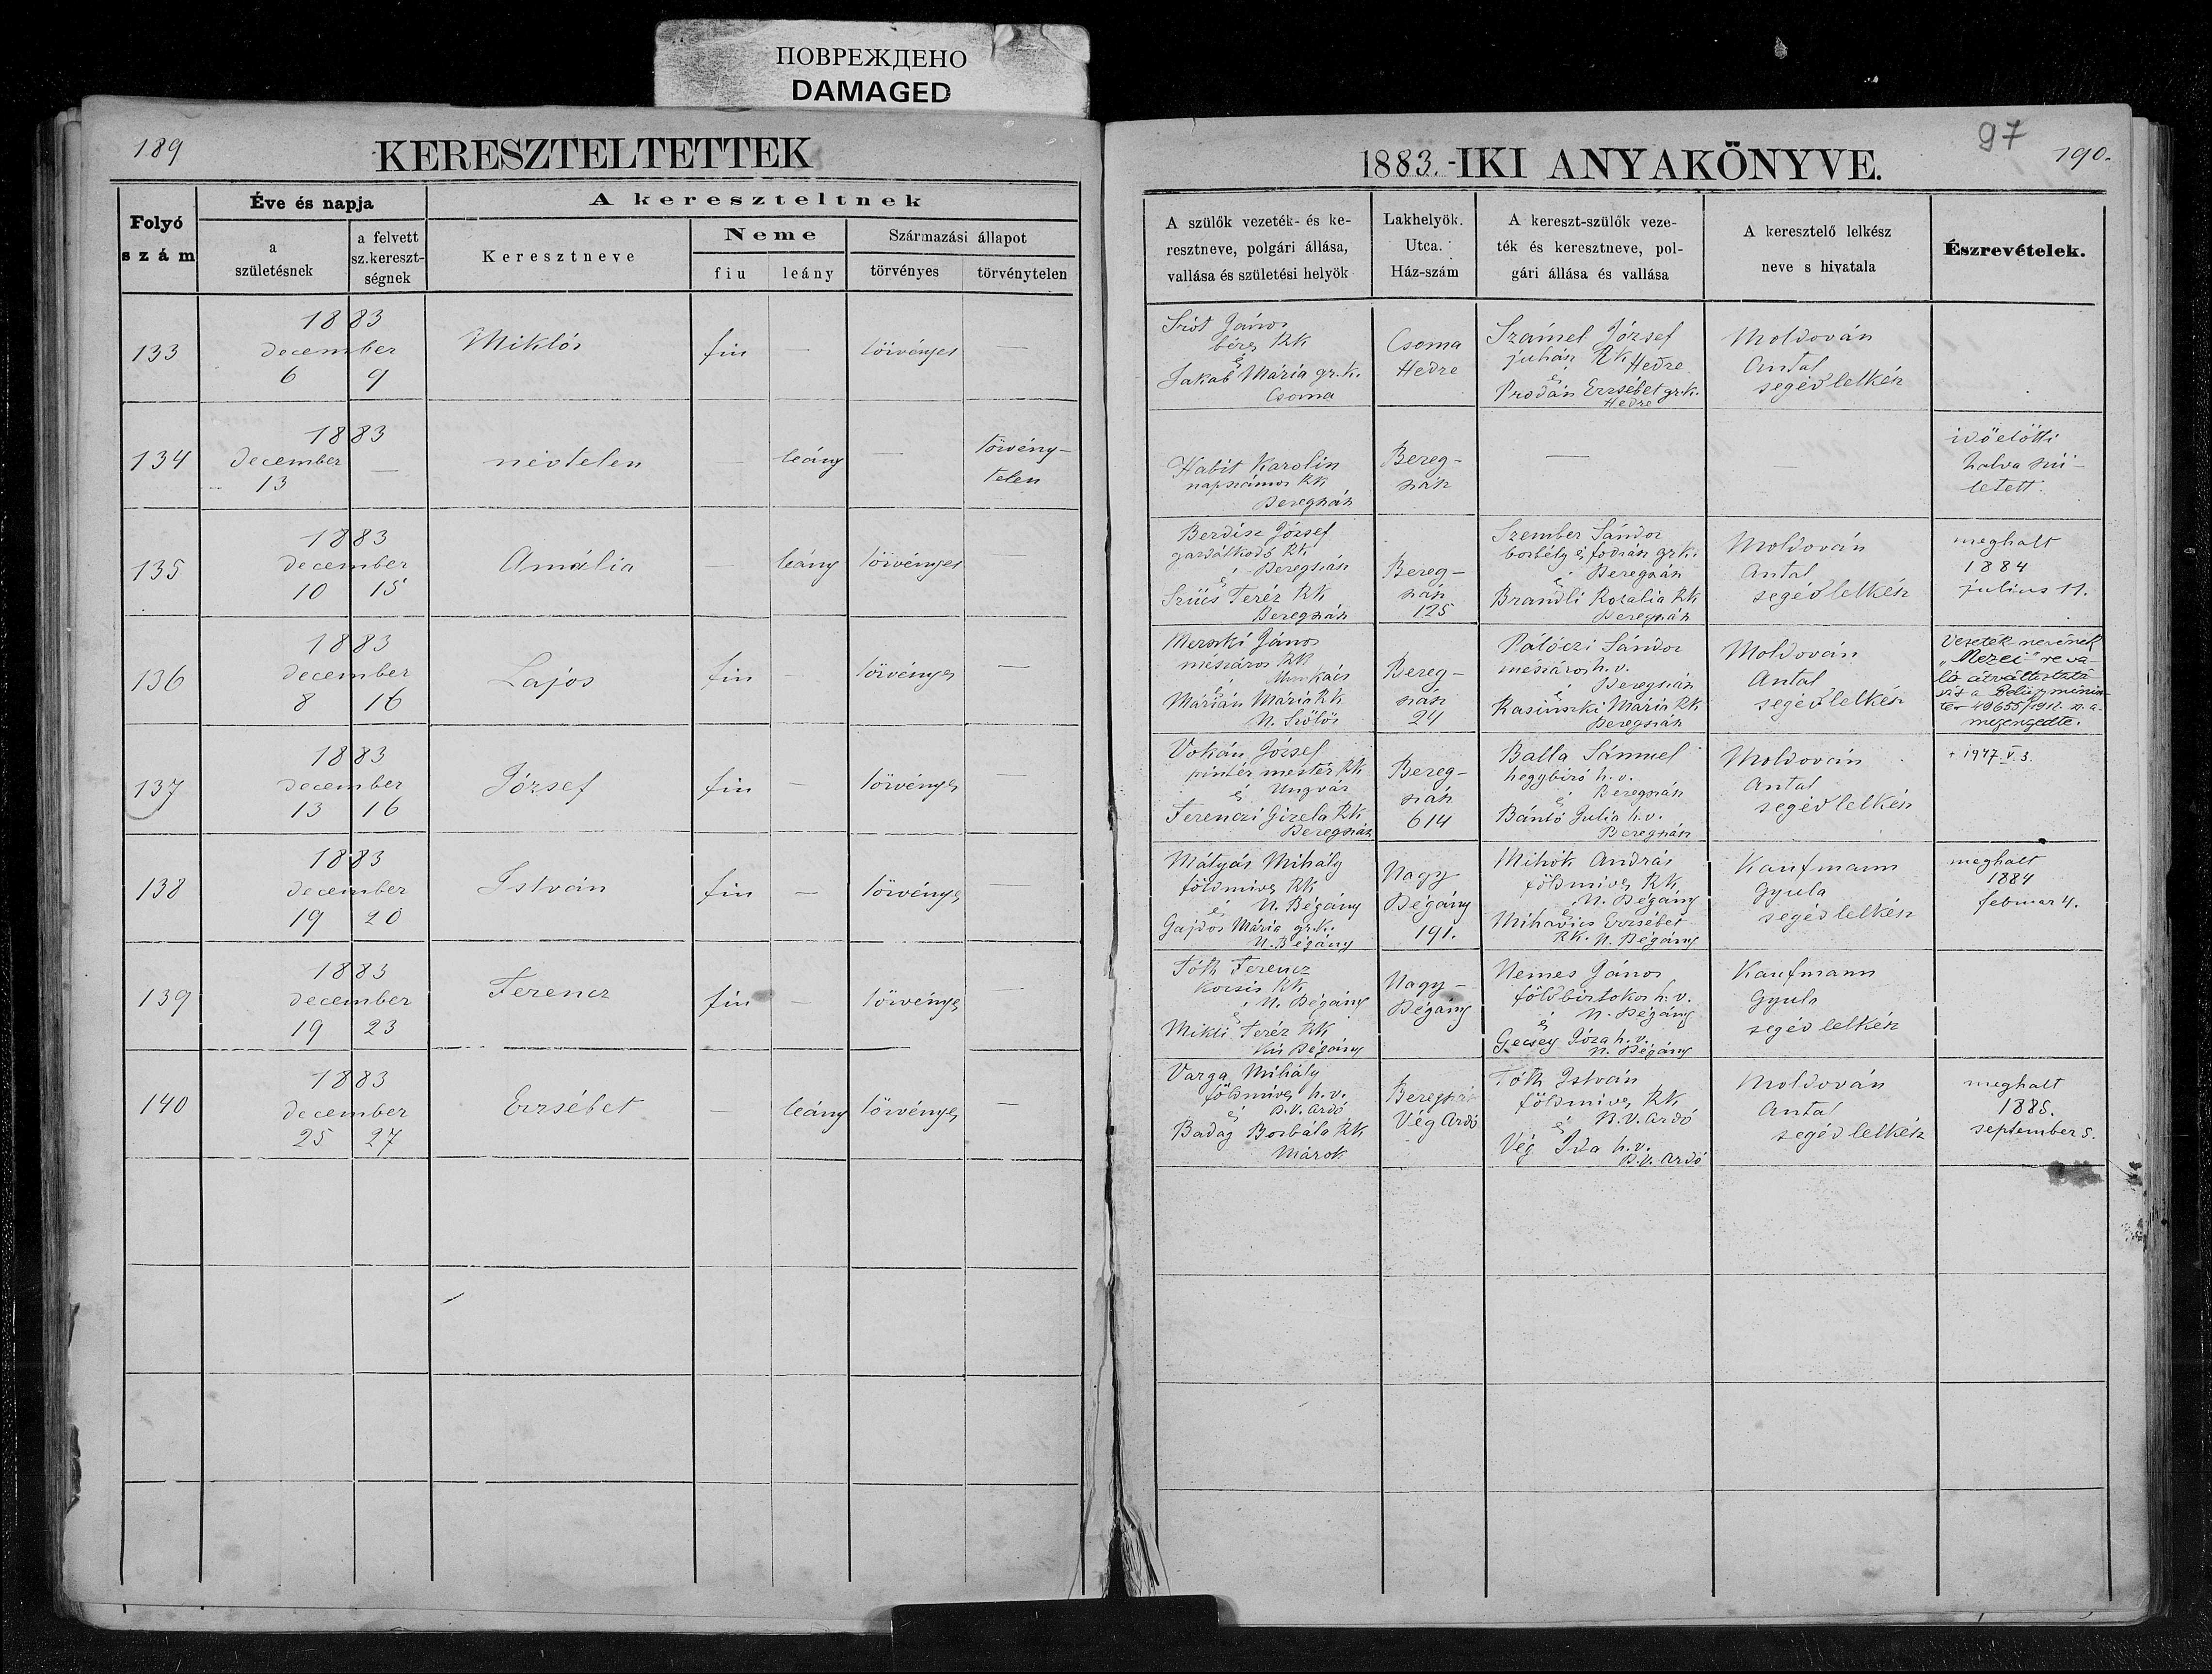 ПОВРЕЖДЕНО
DAMAGED
189
KERESZTELTETTEK
Folyó szám
Éve és napja
a születésnek
a felvett sz.kereszt-ségnek
A kereszteltnek
Keresztneve
Neme
fiu
leány
Származási állapot
törvényes
törvénytelen
133
1883
december
6 9
Miklós
fiu
törvényes
—
134
1883
december
13 —
névtelen
—
leány
—
törvény-
telen
135
1883
december
10 15
Amália
—
leány
törvényes
—
136
1883
december
8 16
Lajos
fiu
—
törvényes
—
137
1883
december
13 16
József
fiu
—
törvényes
—
138
1883
december
19 20
István
fiu
—
törvényes
—
139
1883
december
19 23
Ferencz
fiu
—
törvényes
—
140
1883
december
25 27
Erzsébet
—
leány
törvényes
—
97
190.
1883.-IKI ANYAKÖNYVE.
A szülők vezeték- és ke-
resztneve, polgári állása,
vallása és születési helyök
Lakhelyök.
Utca.
Ház-szám
A kereszt-szülők veze-
ték és keresztneve, pol-
gári állása és vallása
A keresztelő lelkész
neve s hivatala
Észrevételek.
János
béres RK
é
Jakab Mária gr.k.
Csoma
Csoma
Hedre
József
juhász RK Hedre
é
Prodán Erzsébet gr.k.
Hedre
Moldován
Antal
segédlelkész
Habit Karolin
napszámos RK
Beregszász
Bereg-
szász
—
—
időelőtti
halva szü-
letett.
József
gazdálkodó RK
é Beregszász
Szücs Teréz RK
Beregszász
Bereg-
szász
125
Szember Sándor
borbély és fodrász gr.k.
é Beregszász
Brandli Rozalia RK
Beregszász
Moldován
Antal
segédlelkész
meghalt
1884
julius 11.
János
mészáros RK
é Munkács
Márián Mária RK
N. Szőlős
Bereg-
szász
24
Pálóczi Sándor
mészáros h.v.
é Beregszász
Mária RK
Beregszász
Moldován
Antal
segédlelkész
Vezeték nevének
„Mezei" re va-
ló átváltoztatá-
sát a Belügyminisz-
ter 49655/1912. sz. a.
megengedte.
Vokán József
pintér mester RK
é Ungvár
Ferenczi Gizela RK
Beregszász
Bereg-
szász
614
Balla Sámuel
hegybiró h.v.
é Beregszász
Bántó Julia h.v.
Beregszász
Moldován
Antal
segédlelkész
+ 1947. V. 3.
Mátyás Mihály
földmives RK
é N. Bégány
Gajdos Mária gr.k.
N. Bégány
Nagy
Bégány
191.
Mihók András
földmives RK
é N. Bégány
Erzsébet
RK. N. Bégány
Kaufmann
Gyula
segédlelkész
meghalt
1884
februar 4.
Tóth Ferencz
kocsis RK
é N. Bégány
Mikli Teréz RK
Kis Bégány
Nagy-
Bégány
Nemes János
földbirtokos h.v.
é N. Bégány
Gecsey Róza h.v.
N. Bégány
Kaufmann
Gyula
segédlelkész
Varga Mihály
földmives h.v.
é B.V. Ardó
Badag Borbála RK
Márok
Beregszász
Vég Ardó
Tóth István
földmives RK
é B.V. Ardó
Vég Ida h.v.
B.V. Ardó
Moldován
Antal
segédlelkész
meghalt
1885.
september 5.